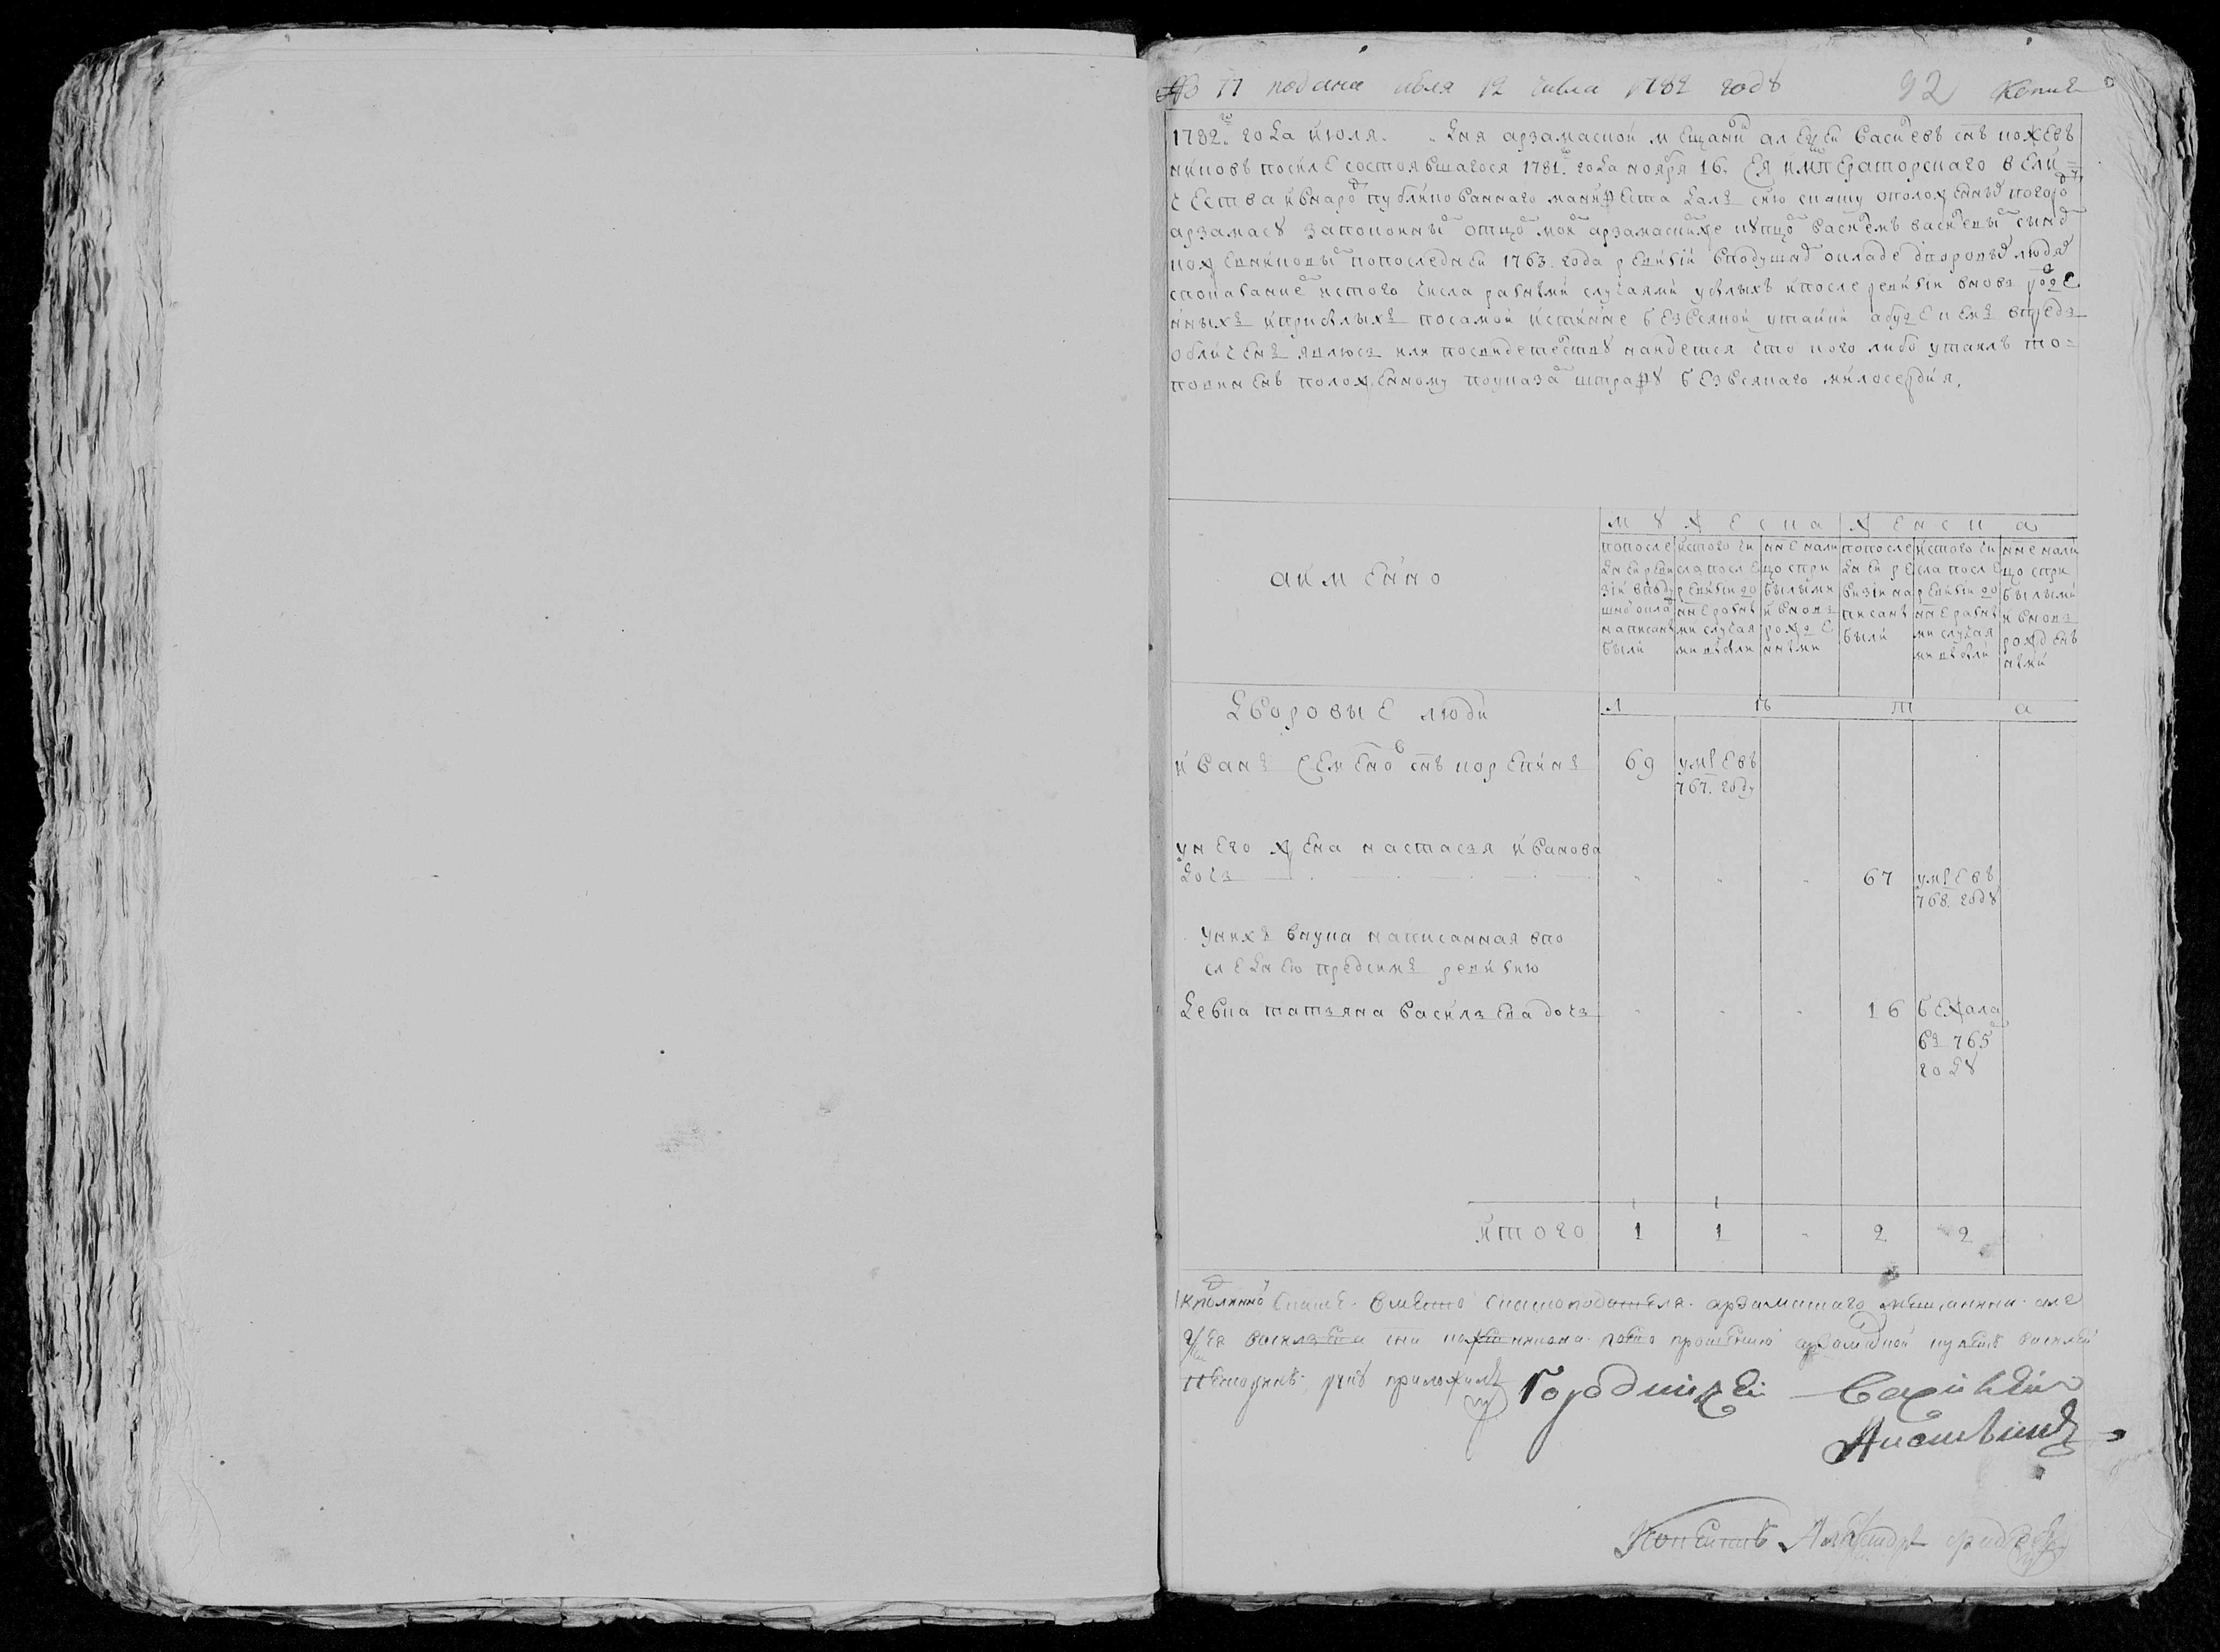 № 77 подана июля 12 числа 1782 году 92 копия
1782го года июля . . дня арзамаской мещанин алексей васильевъ снъ кожев
никовъ посиле состоявшагося 1781го года ноября 16. ея императорскаго вели=
чества ивнарод публикованнаго манифеста далъ сию скаску оположенныхъ погород
арзамасу запокоины отцом моим арзамаским же купцом васильемъ васильевым сыном
кожевниковым попоследней 1763. года ревизии вподушной окладе дворовых людях
спокаванием истого числа разными случаями убылыхъ ипосле ревизии вновь рожде
нныхъ иприбылыхъ посамой истинне безвсякой утайки абуде чемъ впредь
обличенъ явлюсь или посвидетелству найдется что кого либо утаилъ то=
повиненъ положенному поуказам штрафу безвсякаго милосердия.
аимянно
мужеска женска
попоследней ревизии вподушной окладе написаны были
истого числа после ревизии до ныне разными случаями выбыли
ныне налицо сприбылыми ивновь рожденными
попоследней ревизии написаны были
истого числа после ревизии до ныне разными случаями выбыли
ныне налицо сприбылыми ивновь рожденными
дворовые люди
лѣта
иванъ семеновъ снъ корекинъ 69 умре въ
767. году
унего жена настасья иванова
дочь 67 умре въ
768. году
унихъ внука написанная впо
следнею предсимъ ревизию
девка татьяна васильева дочь 16 бежала
въ 765м
году
итого 1 1 - 2 2
кподлинной скаске вместо скаскоподателя арзамаскаго мещанина але
ксея васильева сна кожевникова поево прошению арзамаской купецъ василей
руку приложилъ
Городничей
Копеистъ Александръ